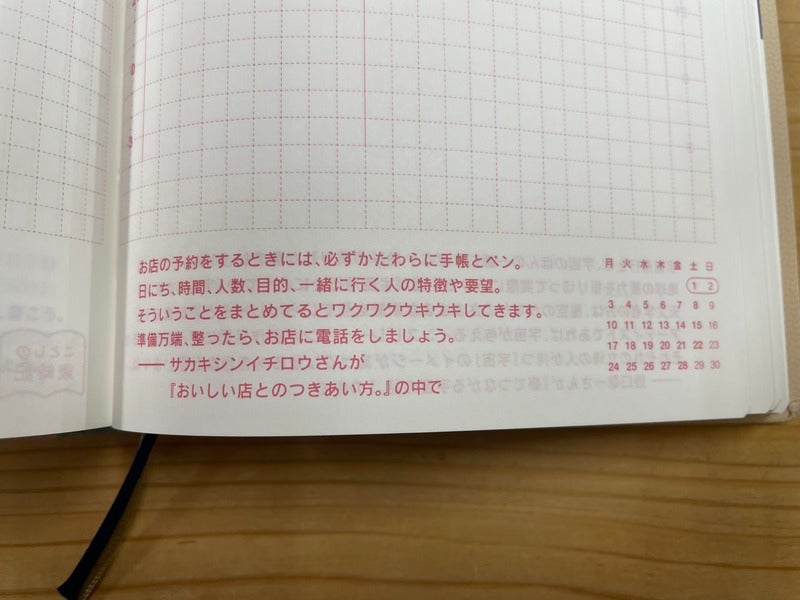 お店の予約をするときには、必ずかたわらに手帳とペン。
日にち、時間、人数、目的、一緒に行く人の特徴や要望。
そういうことをまとめてるとワクワクウキウキしてきます。
準備万端、整ったら、お店に電話をしましょう。
── サカキシンイチロウさんが
『おいしい店とのつきあい方。』の中で
月 火 水 木 金 土 日
1 2
3 4 5 6 7 8 9
10 11 12 13 14 15 16
17 18 19 20 21 22 23
24 25 26 27 28 29 30